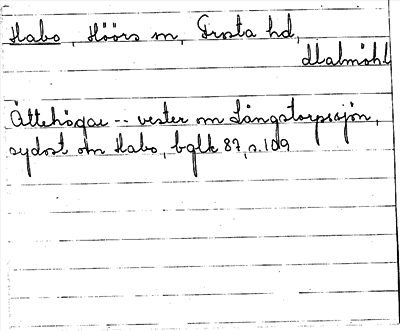 Habo, Höörs sn, Frosta hd,
Malmöhl
Ättehögar -- vester om Långstorpssjön,
sydost om Habo, bglk 87, s. 109